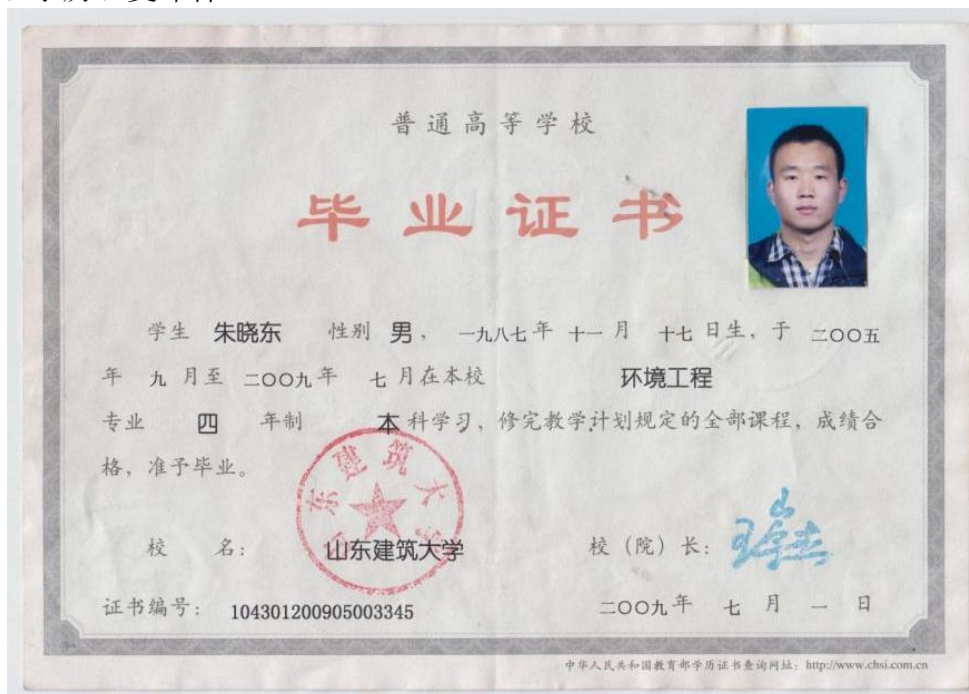 普通高等学校
毕业证书
学生 朱晓东 性别 男， 一九八七年 十一 月 十七 日生，于 二〇〇五
年 九 月至 二〇〇九年 七 月在本校 环境工程
专业 四 年制 本 科学习，修完教学计划规定的全部课程，成绩合
格，准予毕业。
山东建筑大学
校 名： 山东建筑大学 校（院）长：
证书编号： 104301200905003345 二〇〇九年 七 月 一 日
中华人民共和国教育部学历证书查询网址：http://www.chsi.com.cn